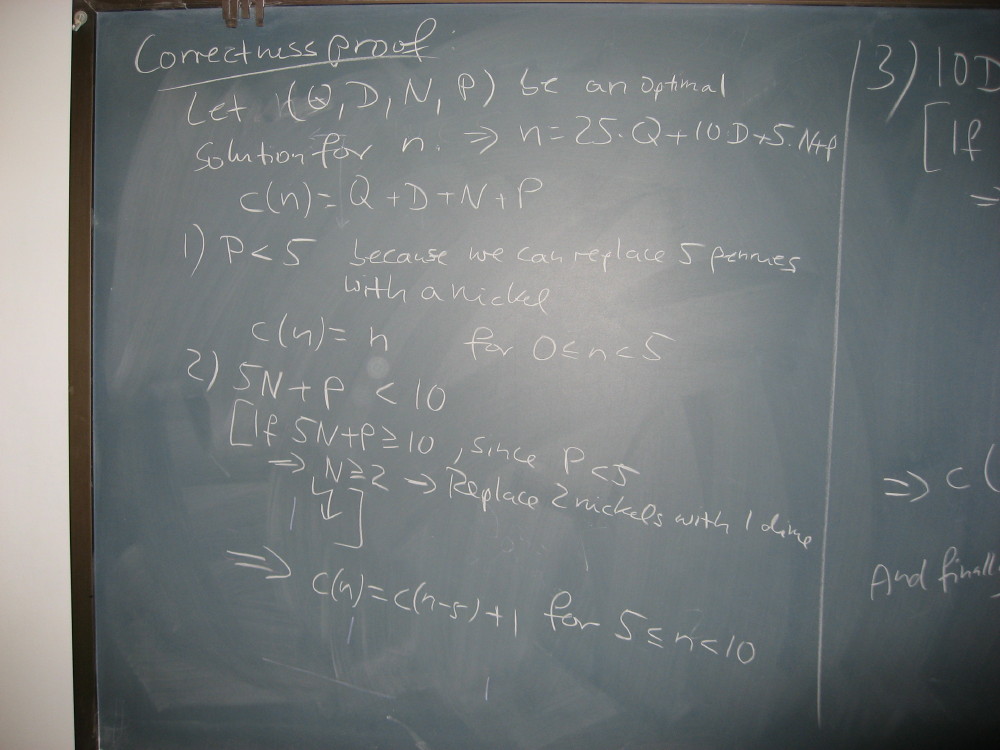 Correctness proof:
Let (Q, D, N, P) be an optimal
solution for n. ⇒ n = 25·Q + 10·D + 5·N + P
c(n) = Q + D + N + P
1) P < 5 because we can replace 5 pennies
with a nickel
c(n) = n for 0 ≤ n < 5
2) 5N + P < 10
[If 5N+P ≥ 10, since P < 5
⇒ N ≥ 2 → Replace 2 nickels with 1 dime
]
⇒ c(n) = c(n-5) + 1 for 5 ≤ n < 10
3) 10D
[If
⇒
⇒ c(
And finall